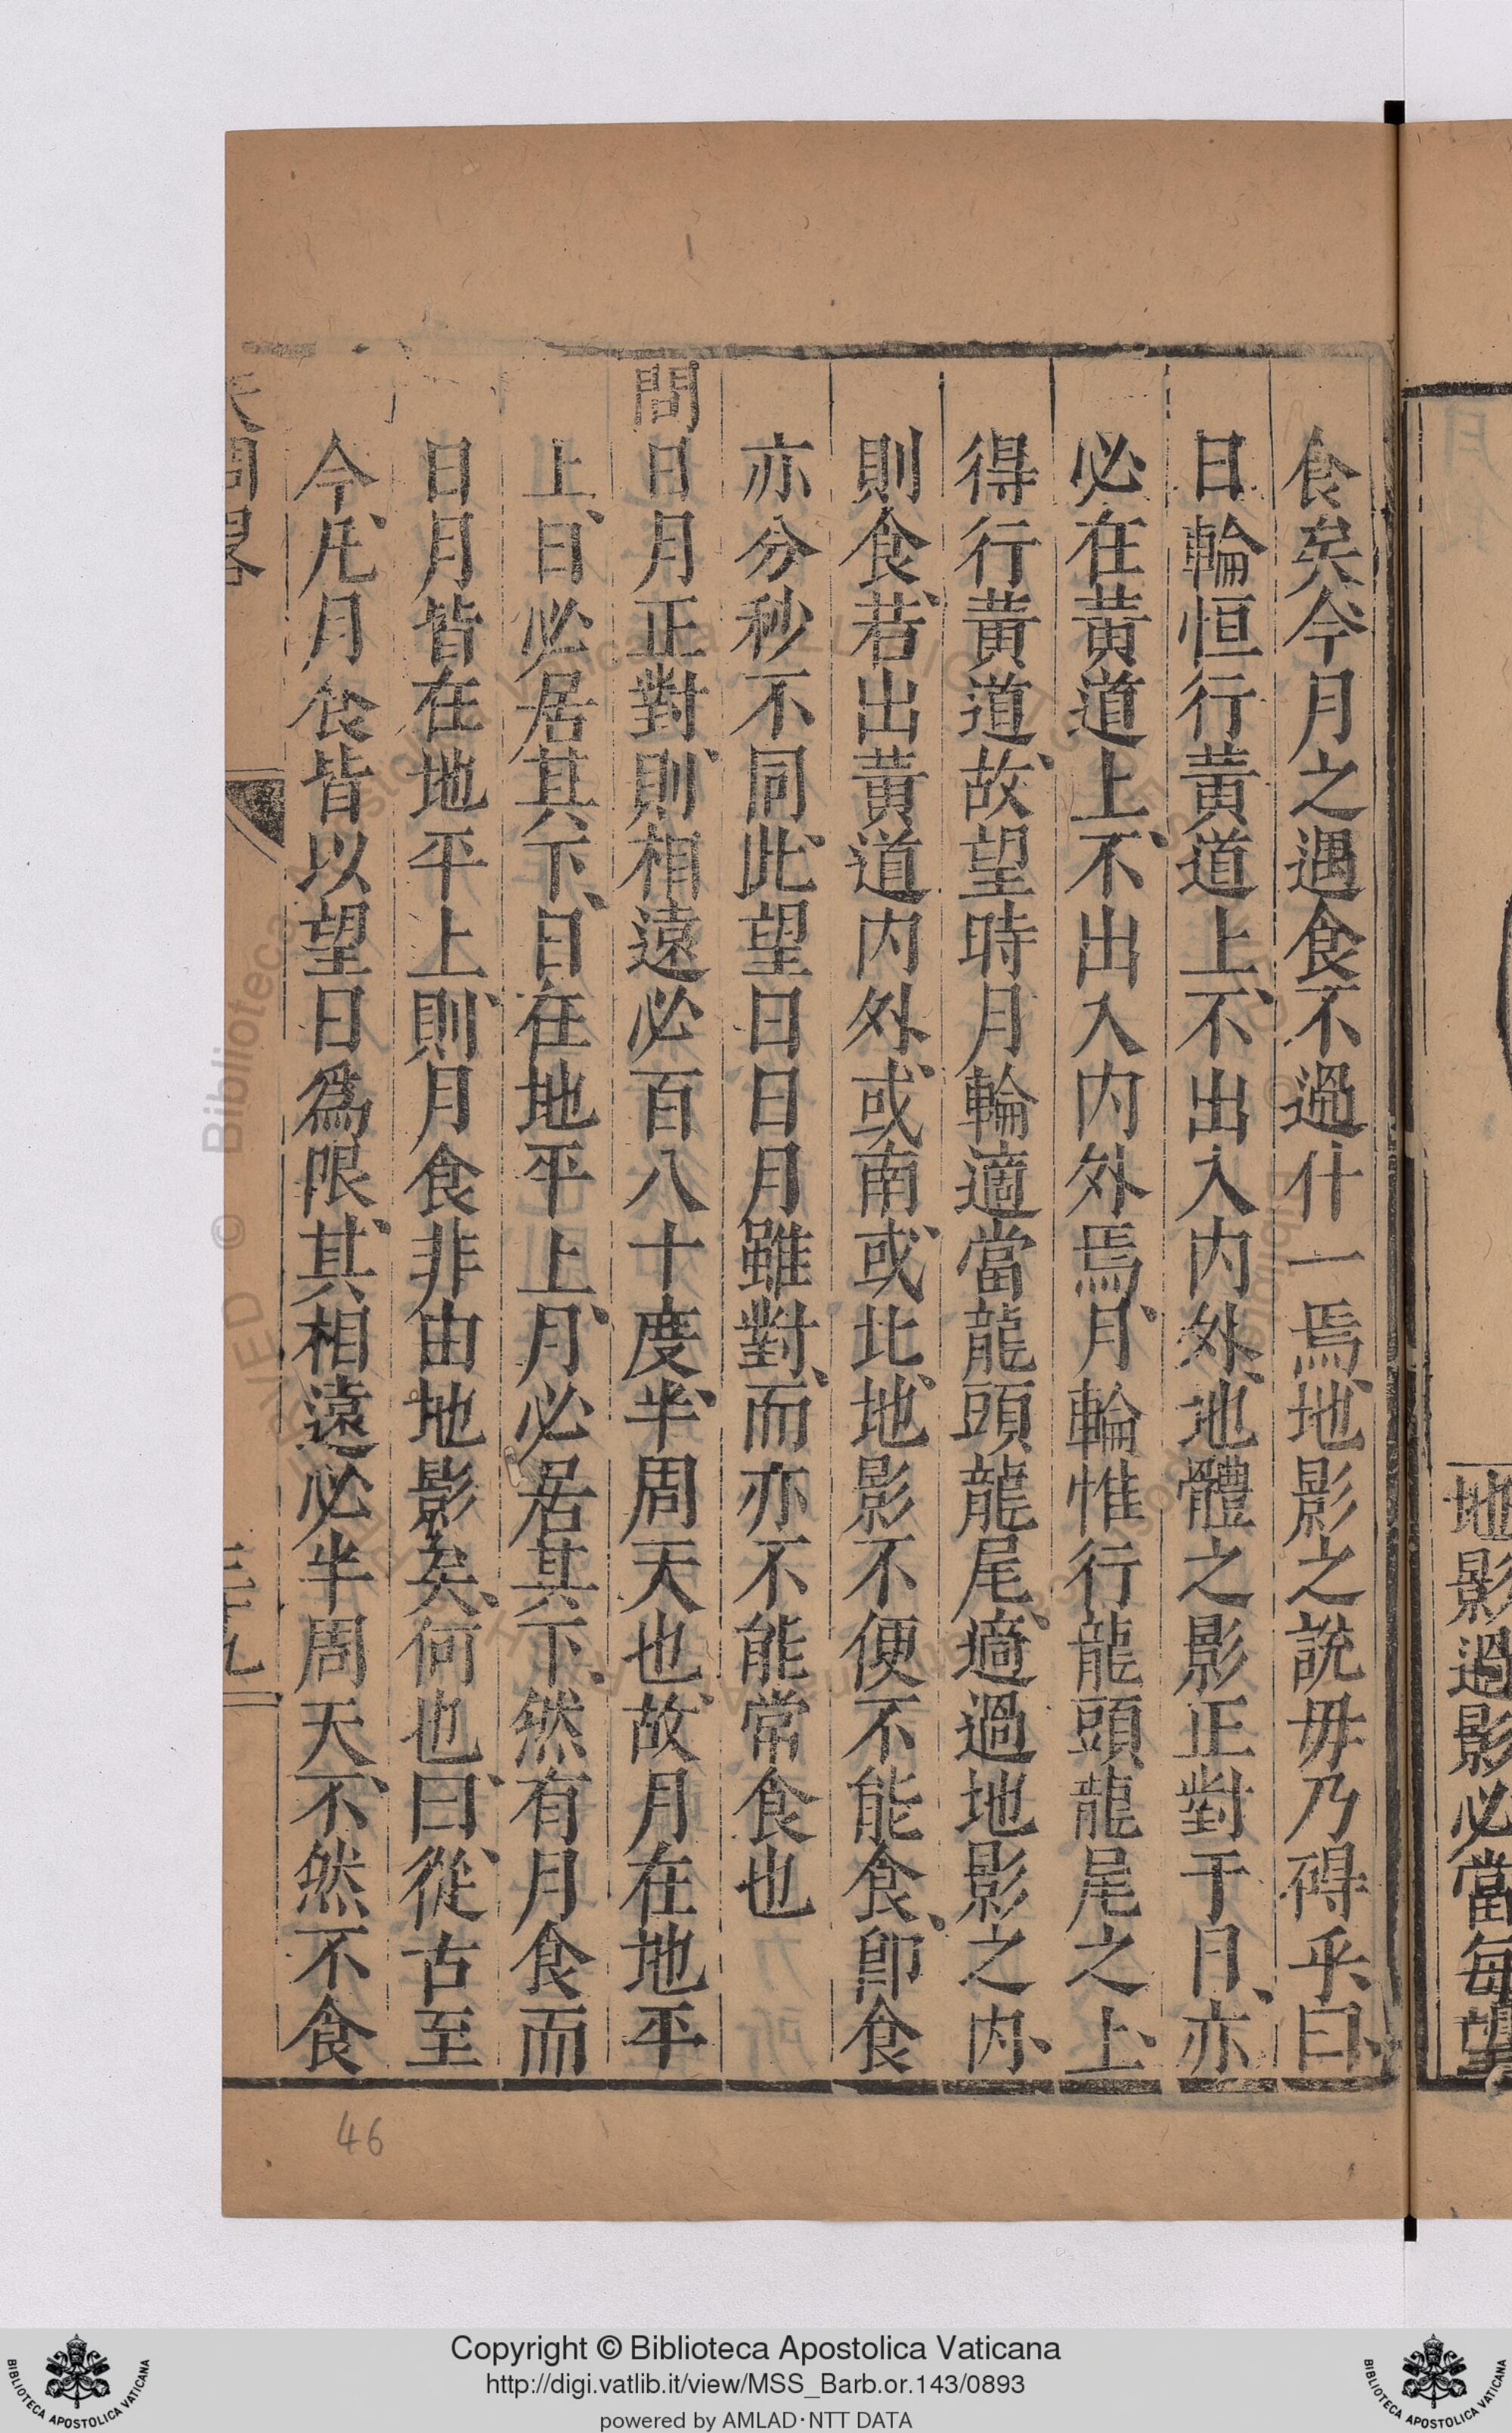 食矣今月之遇食不過什一焉、地影之說毋乃碍乎、曰、
日輪恒行黃道上、不出入内外、地體之影正對于月、亦
必在黃道上、不出入内外焉、月輪惟行龍頭龍尾之上、
得行黃道、故望時月輪適當龍頭龍尾、適過地影之内、
則食、若出黃道内外、或南、或北、地影不便不能食、卽食
亦分秒不同、此望日日月雖對、而亦不能常食也
問日月正對、則相遠必百八十度、半周天也、故月在地平
上、日必居其下、日在地平上、月必居其下、然有月食而
日月皆在地平上、則月食非由地影矣、何也、曰、從古至
今、凡月食皆以望日爲限、其相遠必半周天、不然不食
天問畧
三九
地影過影必當每望
46
Copyright © Biblioteca Apostolica Vaticana
http://digi.vatlib.it/view/MSS_Barb.or.143/0893
powered by AMLAD·NTT DATA
BIBLIOTECA APOSTOLICA VATICANA
BIBLIOTECA APOSTOLICA VATICANA